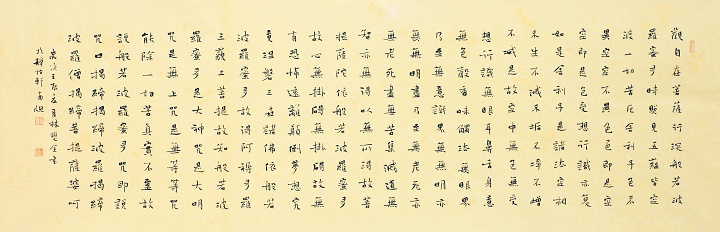 觀自在菩薩行深般若波
羅蜜多時照見五蘊皆空
度一切苦厄舍利子色不
異空空不異色色即是空
空即是色受想行識亦復
如是舍利子是諸法空相
不生不滅不垢不淨不增
不減是故空中無色無受
想行識無眼耳鼻舌身意
無色聲香味觸法無眼界
乃至無意識界無無明亦
無無明盡乃至無老死亦
無老死盡無苦集滅道無
智亦無得以無所得故菩
提薩陀依般若波羅蜜多
故心無掛礙無掛礙故無
有恐怖遠離顛倒夢想究
竟涅槃三世諸佛依般若
波羅蜜多故得阿耨多羅
三藐三菩提故知般若波
羅蜜多是大神咒是大明
咒是無上咒是無等等咒
能除一切苦真實不虛故
說般若波羅蜜多咒即說
咒曰揭諦揭諦波羅揭諦
波羅僧揭諦菩提薩婆呵
歲次壬辰